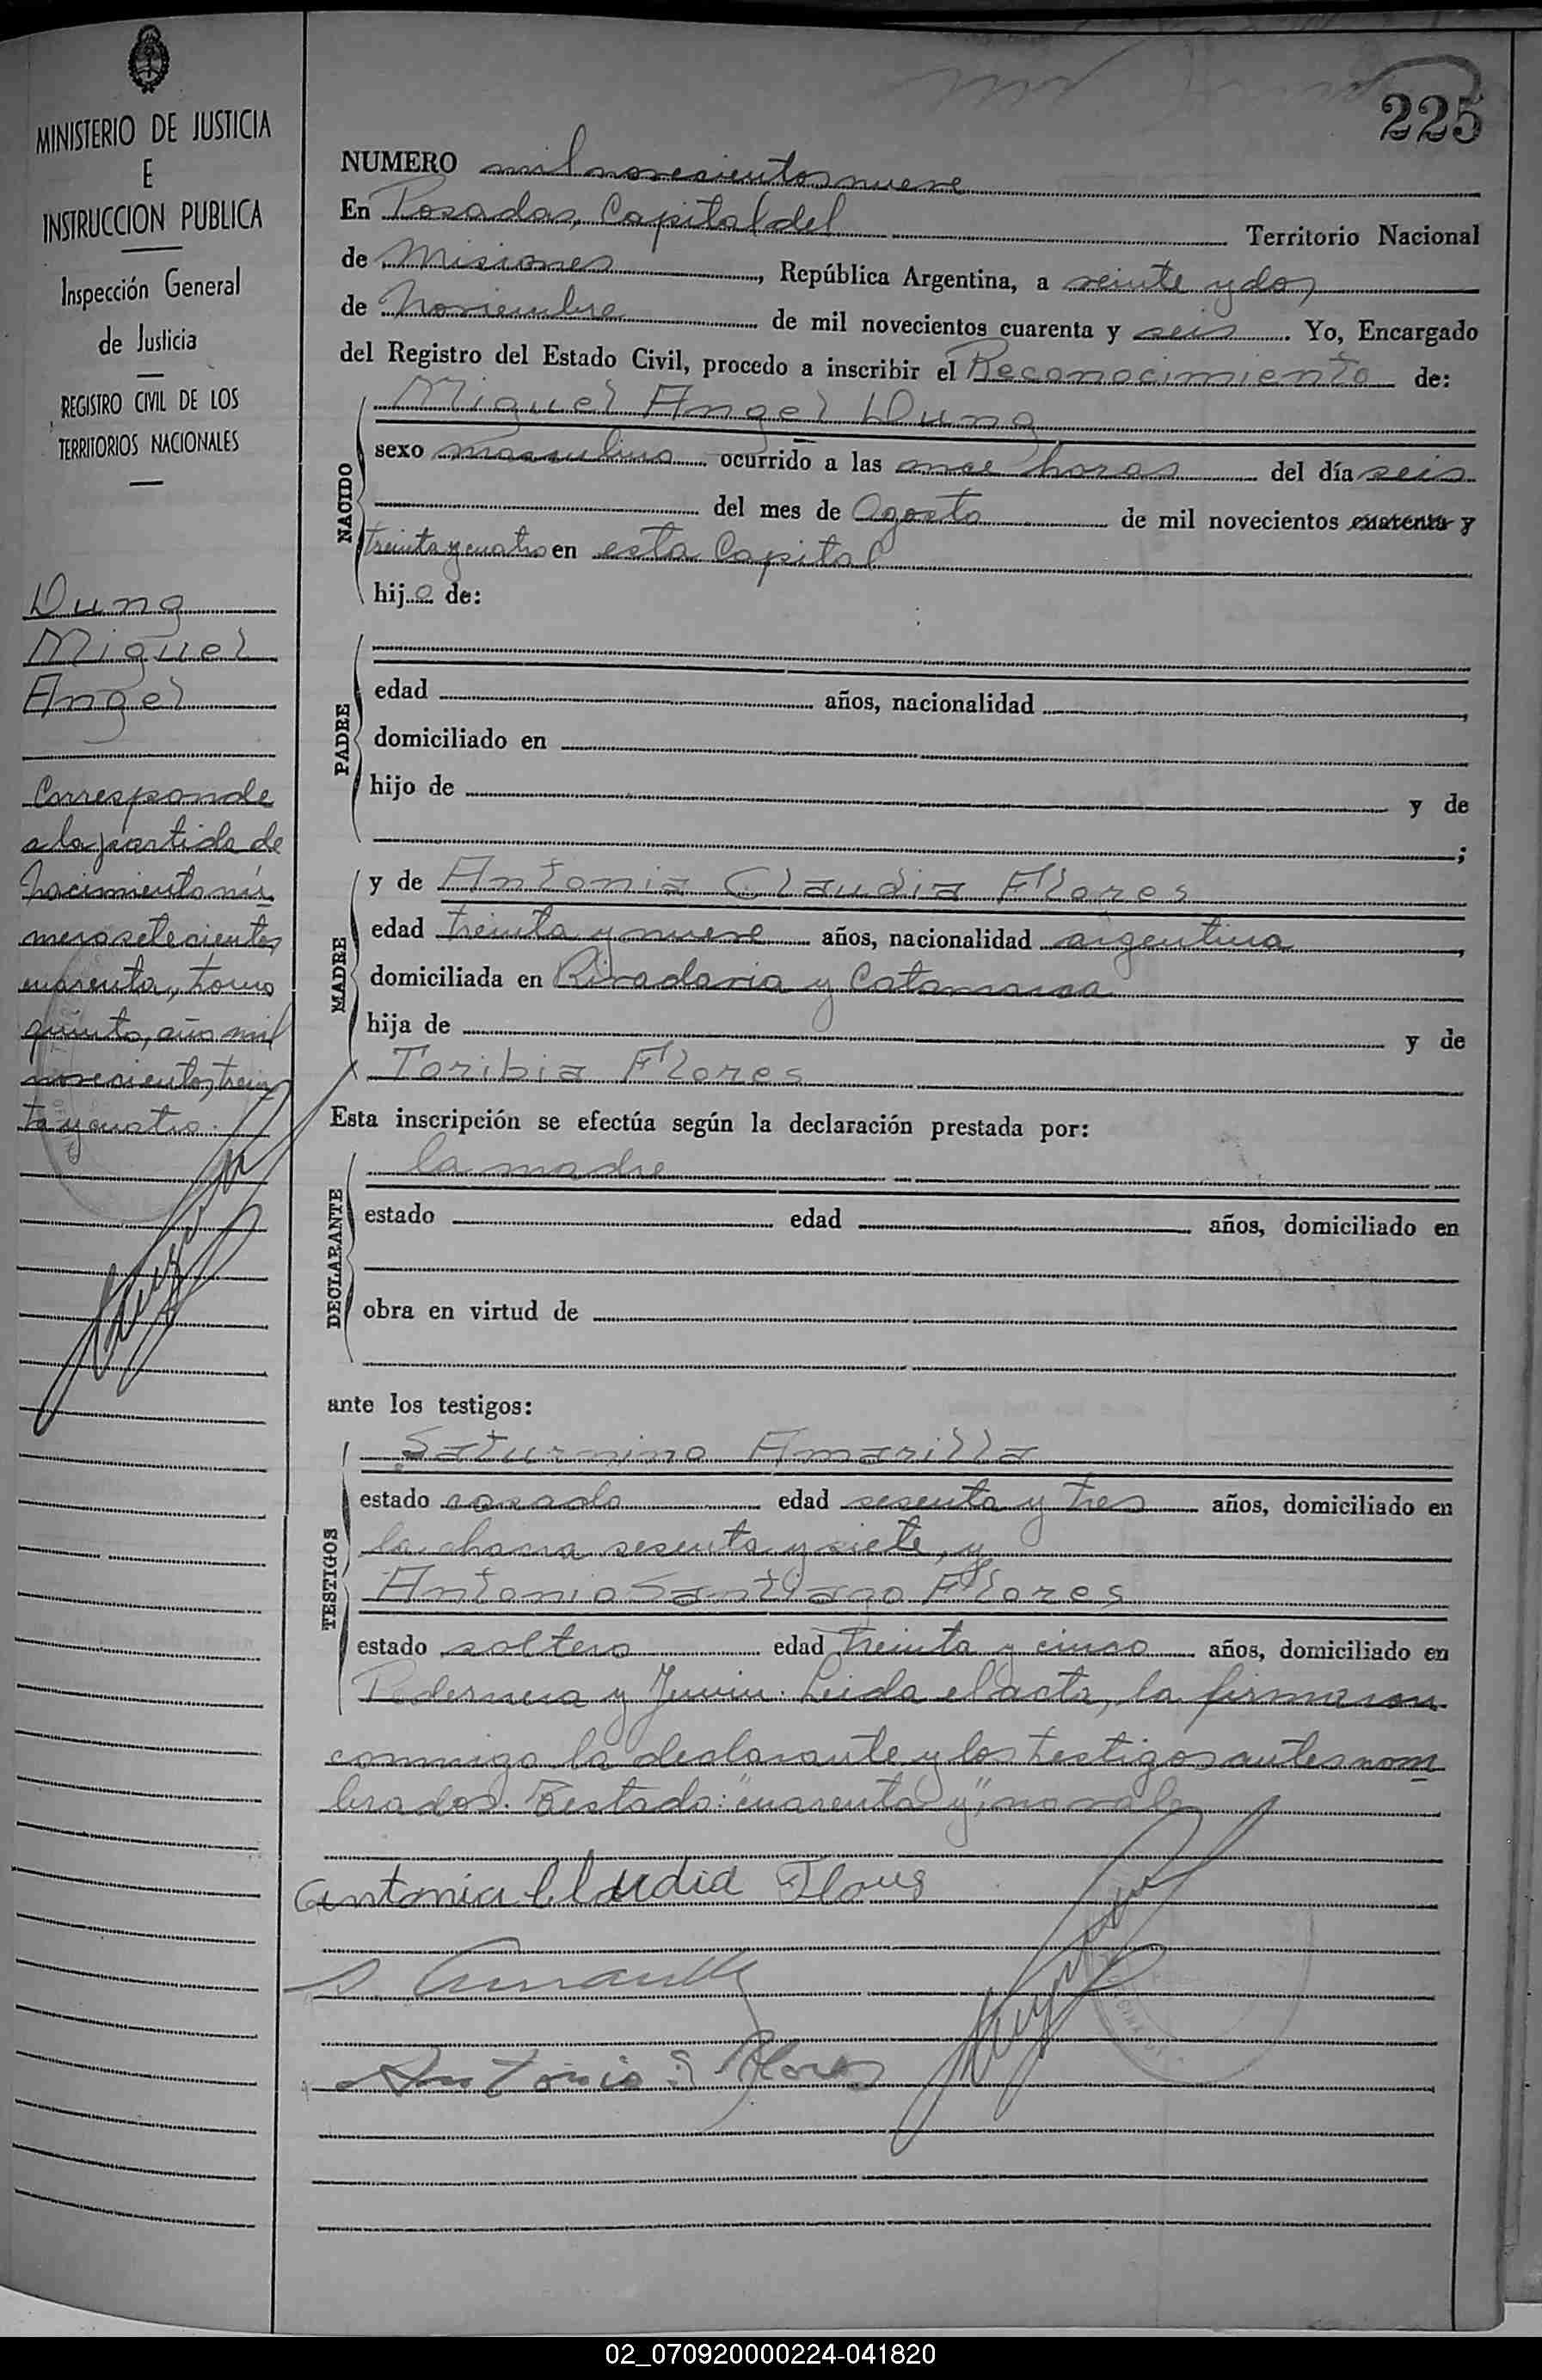 MINISTERIO DE JUSTICIA
E
INSTRUCCION PUBLICA
Inspección General
de Justicia
REGISTRO CIVIL DE LOS
TERRITORIOS NACIONALES
Dung
Miguel
Angel
Corresponde
a la partida de
nacimiento nú
mero setecientos
cuarenta, tomo
quinto, año mil
novecientos trein
ta y cuatro.
225
NUMERO mil novecientos nueve
En Posadas, Capital del Territorio Nacional
de Misiones, República Argentina, a veinte y dos
de Noviembre de mil novecientos cuarenta y seis. Yo, Encargado
del Registro del Estado Civil, procedo a inscribir el Reconocimiento de:
NACIDO
Miguel Angel Dung
sexo masculino ocurrido a las once horas del día seis
del mes de Agosto de mil novecientos cuarenta y
treinta y cuatro en esta Capital
hijo de:
PADRE
edad años, nacionalidad
domiciliado en
hijo de y de
;
MADRE
y de Antonia Claudia Flores
edad treinta y nueve años, nacionalidad argentina
domiciliada en Rivadavia y Catamarca
hija de y de
Toribia Flores
Esta inscripción se efectúa según la declaración prestada por:
DECLARANTE
la madre
estado edad años, domiciliado en
obra en virtud de
ante los testigos:
TESTIGOS
Saturnino Amarilla
estado casado edad sesenta y tres años, domiciliado en
la chacra sesenta y siete, y
Antonio Santiago Flores
estado soltero edad treinta y cinco años, domiciliado en
Pedernera y Junin. Leida el acta, la firmaron
conmigo la declarante y los testigos antes nom
brados. Testado: "cuarenta y", no vale
Antonia Claudia Flores
S. Amarilla
Antonio S Flores
02_070920000224-041820